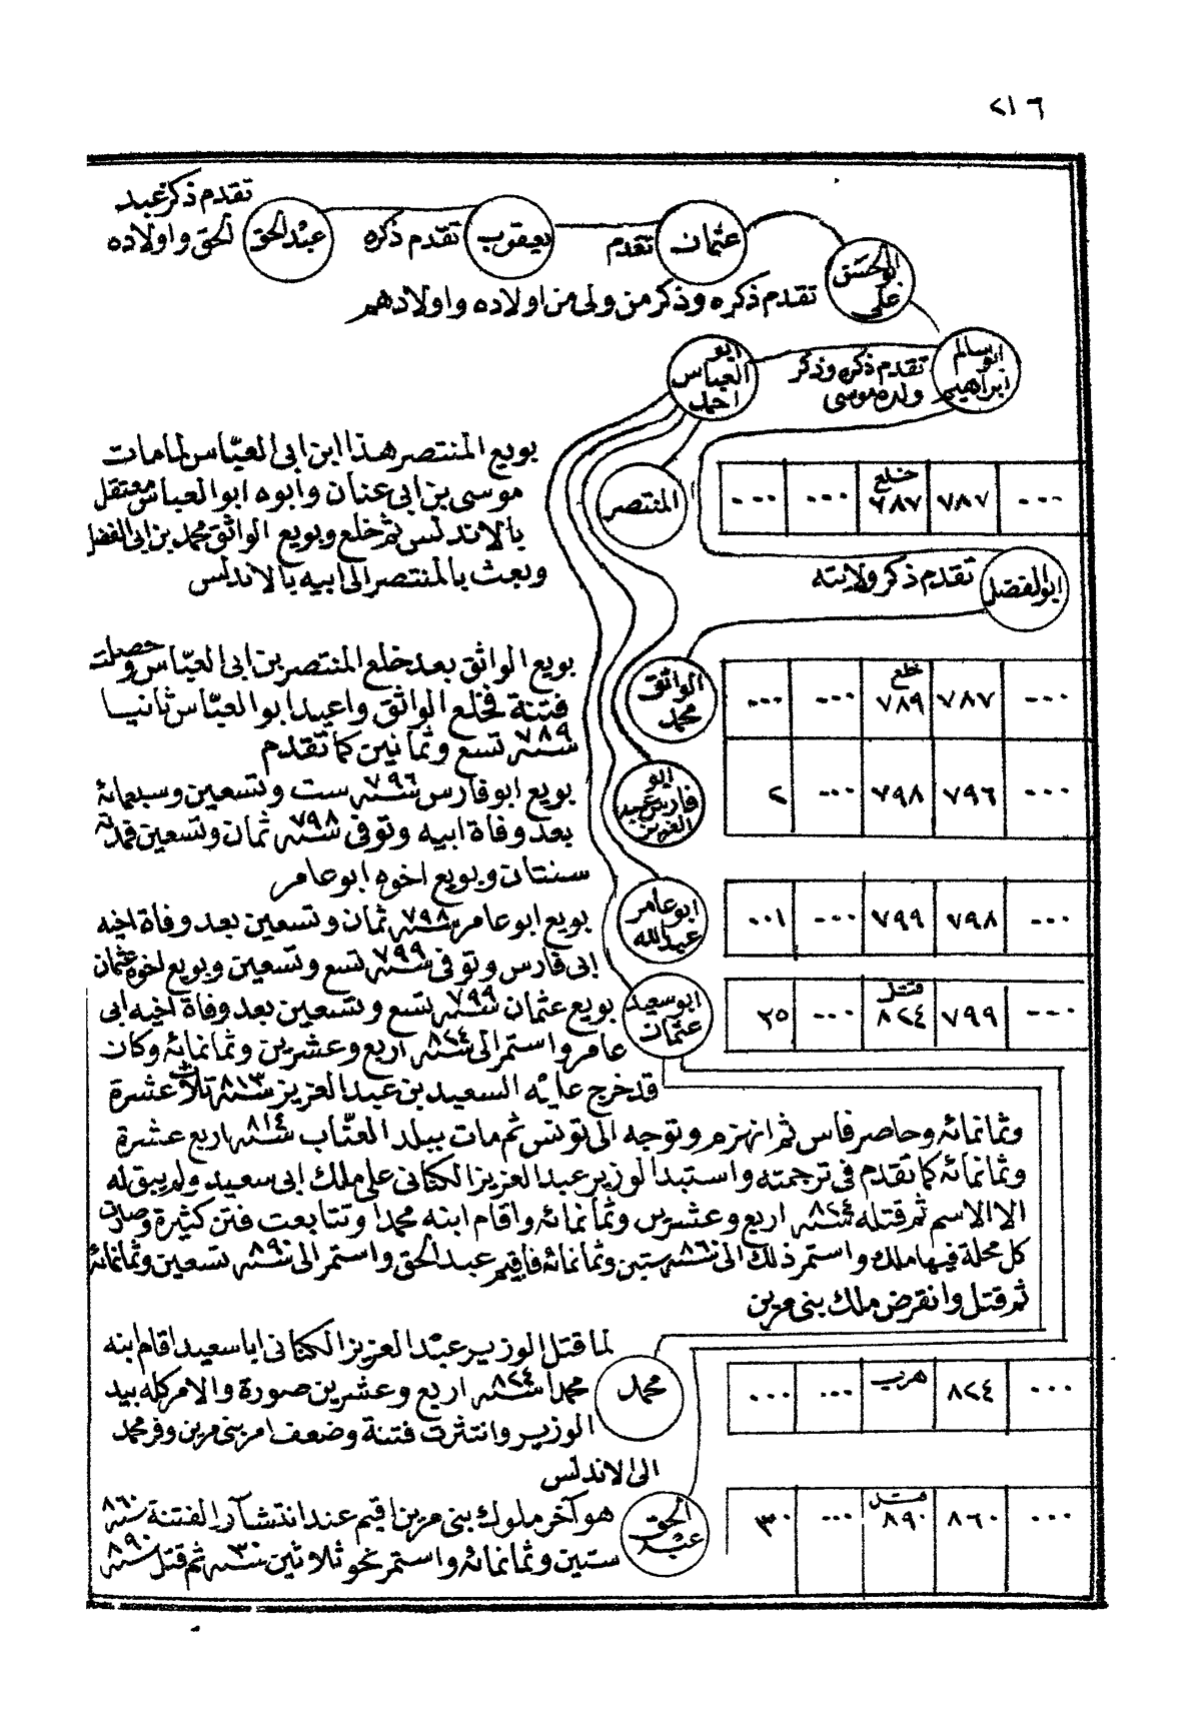 ٢١٦
تقدم ذكر عبد
الحق واولاده
عبد الحق
تقدم ذكره
يعقوب
تقدم
عثمان
ابو الحسن
علي
تقدم ذكره وذكر من ولى من اولاده واولادهم
ابو سالم
ابراهيم
تقدم ذكره وذكر
ولده موسى
ابو
العباس
احمد
المنتصر
٠٠٠ ٧٨٧ خلع ٧٨٧ ٠٠٠ ٠٠٠
بويع المنتصر هذا ابن ابى العبّاس لما مات
موسى بن ابى عنان وابوه ابو العباس معتقل
بالاندلس ثم خلع وبويع الواثق محمد بن ابى الفضل
وبعث بالمنتصر الى ابيه بالاندلس
ابو الفضل
تقدم ذكر ولايته
الواثق
محمد
٠٠٠ ٧٨٧ خلع ٧٨٩ ٠٠٠ ٠٠٠
بويع الواثق بعد خلع المنتصر بن ابى العبّاس وحصلت
فتنة فخلع الواثق واعيد ابو العبّاس ثانيا
سنة ٧٨٩ تسع وثمانين كما تقدم
ابو
فارس عبد
العزيز
٠٠٠ ٧٩٦ ٧٩٨ ٠٠٠ ٢
بويع ابو فارس سنة ٧٩٦ ست وتسعين وسبعمائة
بعد وفاة ابيه وتوفى سنة ٧٩٨ ثمان وتسعين فمدته
سنتان وبويع اخوه ابو عامر
ابو عامر
عبد الله
٠٠٠ ٧٩٨ ٧٩٩ ٠٠٠ ٠٠١
بويع ابو عامر سنة ٧٩٨ ثمان وتسعين بعد وفاة اخيه
ابى فارس وتوفى سنة ٧٩٩ تسع وتسعين وبويع اخوه عثمان
ابو سعيد
عثمان
٠٠٠ ٧٩٩ قتل ٨٢٤ ٠٠٠ ٢٥
بويع عثمان سنة ٧٩٩ تسع وتسعين بعد وفاة اخيه ابى
عامر واستمر الى سنة ٨٢٤ اربع وعشرين وثمانمائة وكان
قد خرج عليه السعيد بن عبد العزيز سنة ٨١٣ ثلاث عشرة
وثمانمائة وحاصر فاس ثم انهزم وتوجه الى تونس ثم مات ببلد العنّاب سنة ٨١٤ اربع عشرة
وثمانمائة كما تقدم فى ترجمته واستبد الوزير عبد العزيز الكتانى على ملك ابى سعيد ولم يبق له
الا الاسم ثم قتله سنة ٨٢٤ اربع وعشرين وثمانمائة واقام ابنه محمدا وتتابعت فتن كثيرة وصار فى
كل محلة فيها ملك واستمر ذلك الى سنة ٨٦٠ ستين وثمانمائة فاقيم عبد الحق واستمر الى سنة ٨٩٠ تسعين وثمانمائة
ثم قتل وانقرض ملك بنى مرين
محمد
٠٠٠ ٨٢٤ هرب ٠٠٠ ٠٠٠
لما قتل الوزير عبد العزيز الكتانى ابا سعيد اقام ابنه
محمدا سنة ٨٢٤ اربع وعشرين صورة والامر كله بيد
الوزير وانتثرت فتنة وضعف امر بنى مرين وفر محمد
الى الاندلس
عبد الحق
٠٠٠ ٨٦٠ قتل ٨٩٠ ٠٠٠ ٣٠
هو آخر ملوك بنى مرين اقيم عند انتشار الفتنة سنة ٨٦٠
ستين وثمانمائة واستمر نحو ثلاثين سنة ٣٠ ثم قتل سنة ٨٩٠